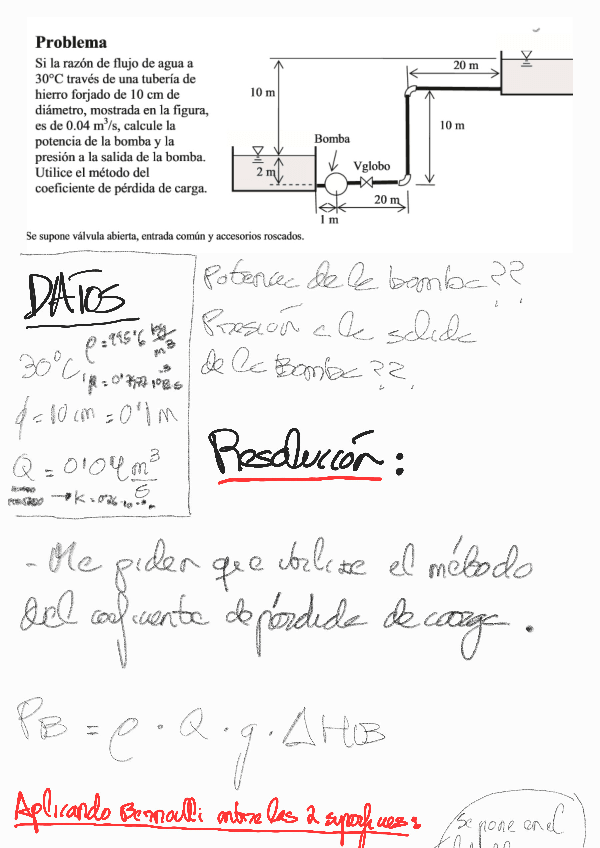 Problema
Si la razón de flujo de agua a
30°C través de una tubería de
hierro forjado de 10 cm de
diámetro, mostrada en la figura,
es de 0.04 m³/s, calcule la
potencia de la bomba y la
presión a la salida de la bomba.
Utilice el método del
coeficiente de pérdida de carga.
20 m
10 m
10 m
Bomba
Vglobo
2 m
20 m
1 m
Se supone válvula abierta, entrada común y accesorios roscados.
DATOS
ρ = 995'6 kg/m³
30°C
ϕ = 10 cm = 0'1 m
Q = 0'04 m³/s
Potencia de la bomba??
Presión a la salida
de la Bomba??
Resolución:
- Me piden que utilize el método
del coeficiente de pérdida de carga.
P_B = ρ · Q · g · ΔH_B
Aplicando Bernoulli entre las 2 superficies:
se pone en el